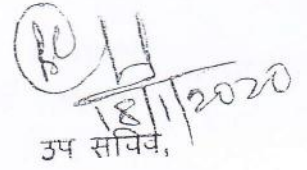 18/1/2020
उप सचिव,